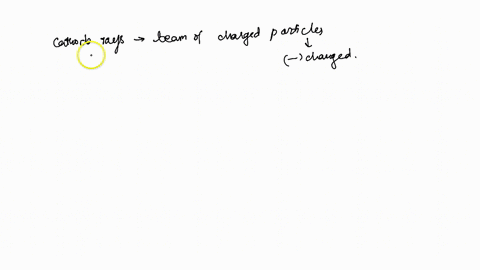 Cathode rays → beam of charged particles
↓
(-) charged.